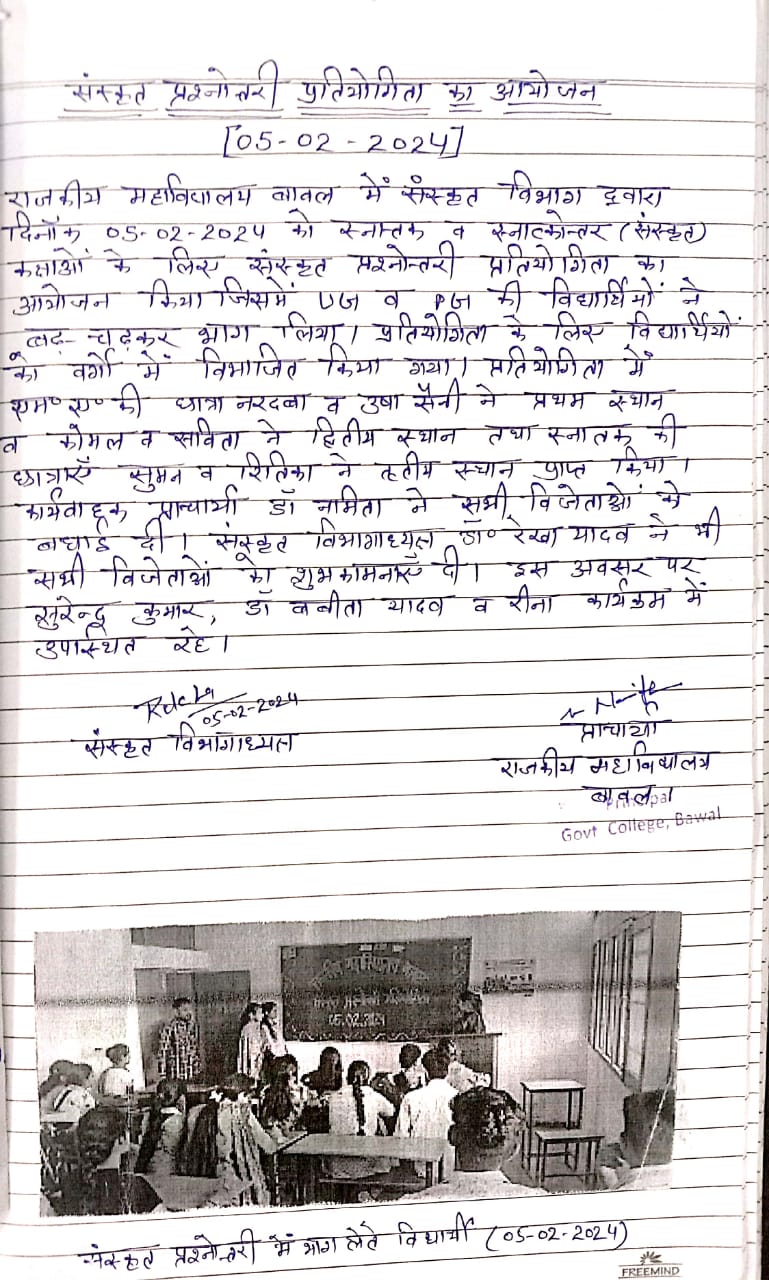 संस्कृत प्रश्नोत्तरी प्रतियोगिता का आयोजन
[05-02-2024]
राजकीय महाविद्यालय बावल में संस्कृत विभाग द्वारा
दिनाँक 05-02-2024 को स्नातक व स्नाटकोत्तर (संस्कृत)
कक्षाओं के लिए संस्कृत प्रश्नोत्तरी प्रतियोगिता का
आयोजन किया जिसमें UG व PG की विद्यार्थियों ने
बढ़-चढ़कर भाग लिया। प्रतियोगिता के लिए विद्यार्थियों
को वर्गो में विभाजित किया गया। प्रतियोगिता में
एम॰ ए॰ की छात्रा नरदबा व उषा सैनी ने प्रथम स्थान
व कोमल व सविता ने द्वितीय स्थान तथा स्नातक की
छात्राएँ सुमन व रितिका ने तृतीय स्थान प्राप्त किया।
कार्यवाहक प्राचार्या डॉ नामिता ने सभी विजेताओं को
बधाई दी। संस्कृत विभागाध्यक्ष डॉ॰ रेखा यादव ने भी
सभी विजेताओं को शुभकामनाएँ दी। इस अवसर पर
सुरेन्द्र कुमार, डॉ बबीता यादव व रीना कार्यक्रम में
उपास्थित रहे।
Rekha
05-02-2024
संस्कृत विभागाध्यक्ष
प्राचार्या
राजकीय महाविद्यालय
बावल।
Principal
Govt College, Bawal
05.02.2024
संस्कृत प्रश्नोत्तरी में भाग लेते विद्यार्थी (05-02-2024)
FREEMIND